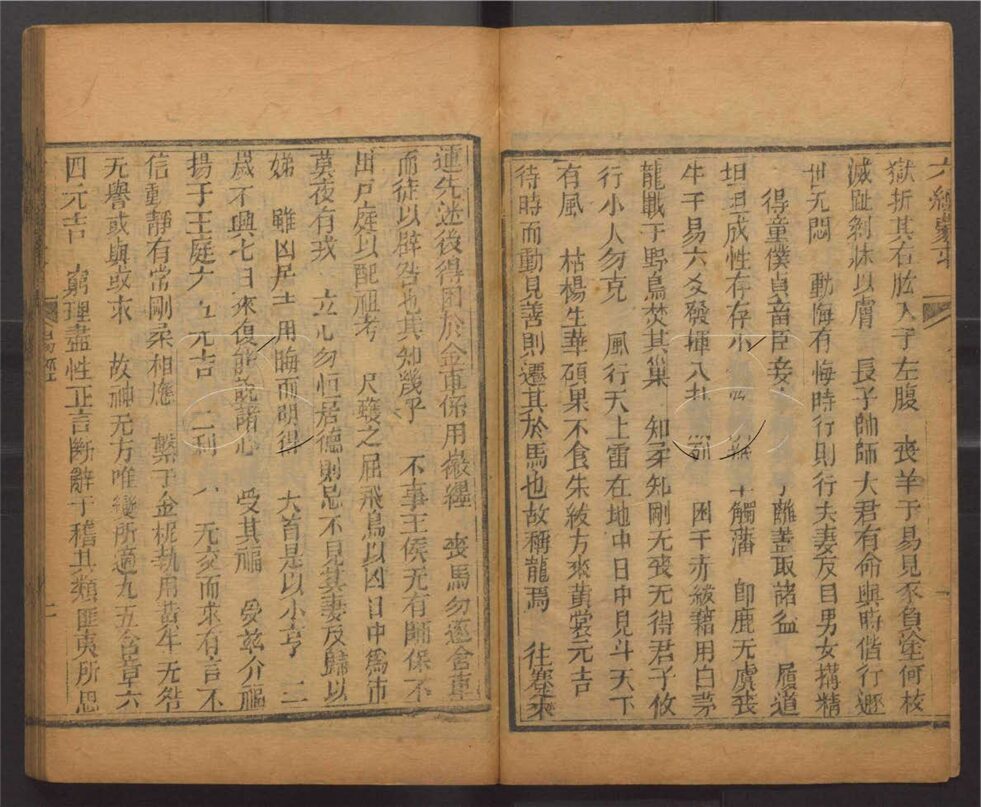 獄折其右肱入于左腹　喪羊于易見豕負塗何校
滅趾剝牀以膚　長子帥師大君有命與時偕行遯
世无悶　動悔有悔時行則行夫妻反目男女搆精
得童僕貞畜臣妾　離蓋取諸益　履道
坦坦成性存存小　觸藩　即鹿无虞喪
牛于易六爻發揮八卦　困于赤紱藉用白茅
龍戰于野鳥焚其巢　知柔知剛无喪无得君子攸
行小人勿克　風行天上雷在地中日中見斗天下
有風　枯楊生華碩果不食朱紱方來黃裳元吉
待時而動見善則遷其於馬也故稱龍焉　往蹇來
連先迷後得困於金車係用徽纆　喪馬勿逐舍車
而徒以辟咎也其知幾乎　不事王侯无有師保不
出戶庭以配祖考　尺蠖之屈飛鳥以凶日中爲市
莫夜有戎　立心勿恒居德則忌不見其妻反歸以
娣　雖凶居吉用晦而明得　大首是以小亨　二
歲不興七日來復能說諸心　受其福　受茲介福
揚于王庭六五元吉　二利　无交而求有言不
信動靜有常剛柔相應　繫于金柅執用黃牛无咎
无譽或與或求　故神无方唯變所適九五含章六
四元吉　窮理盡性正言斷辭于稽其類匪夷所思
易經